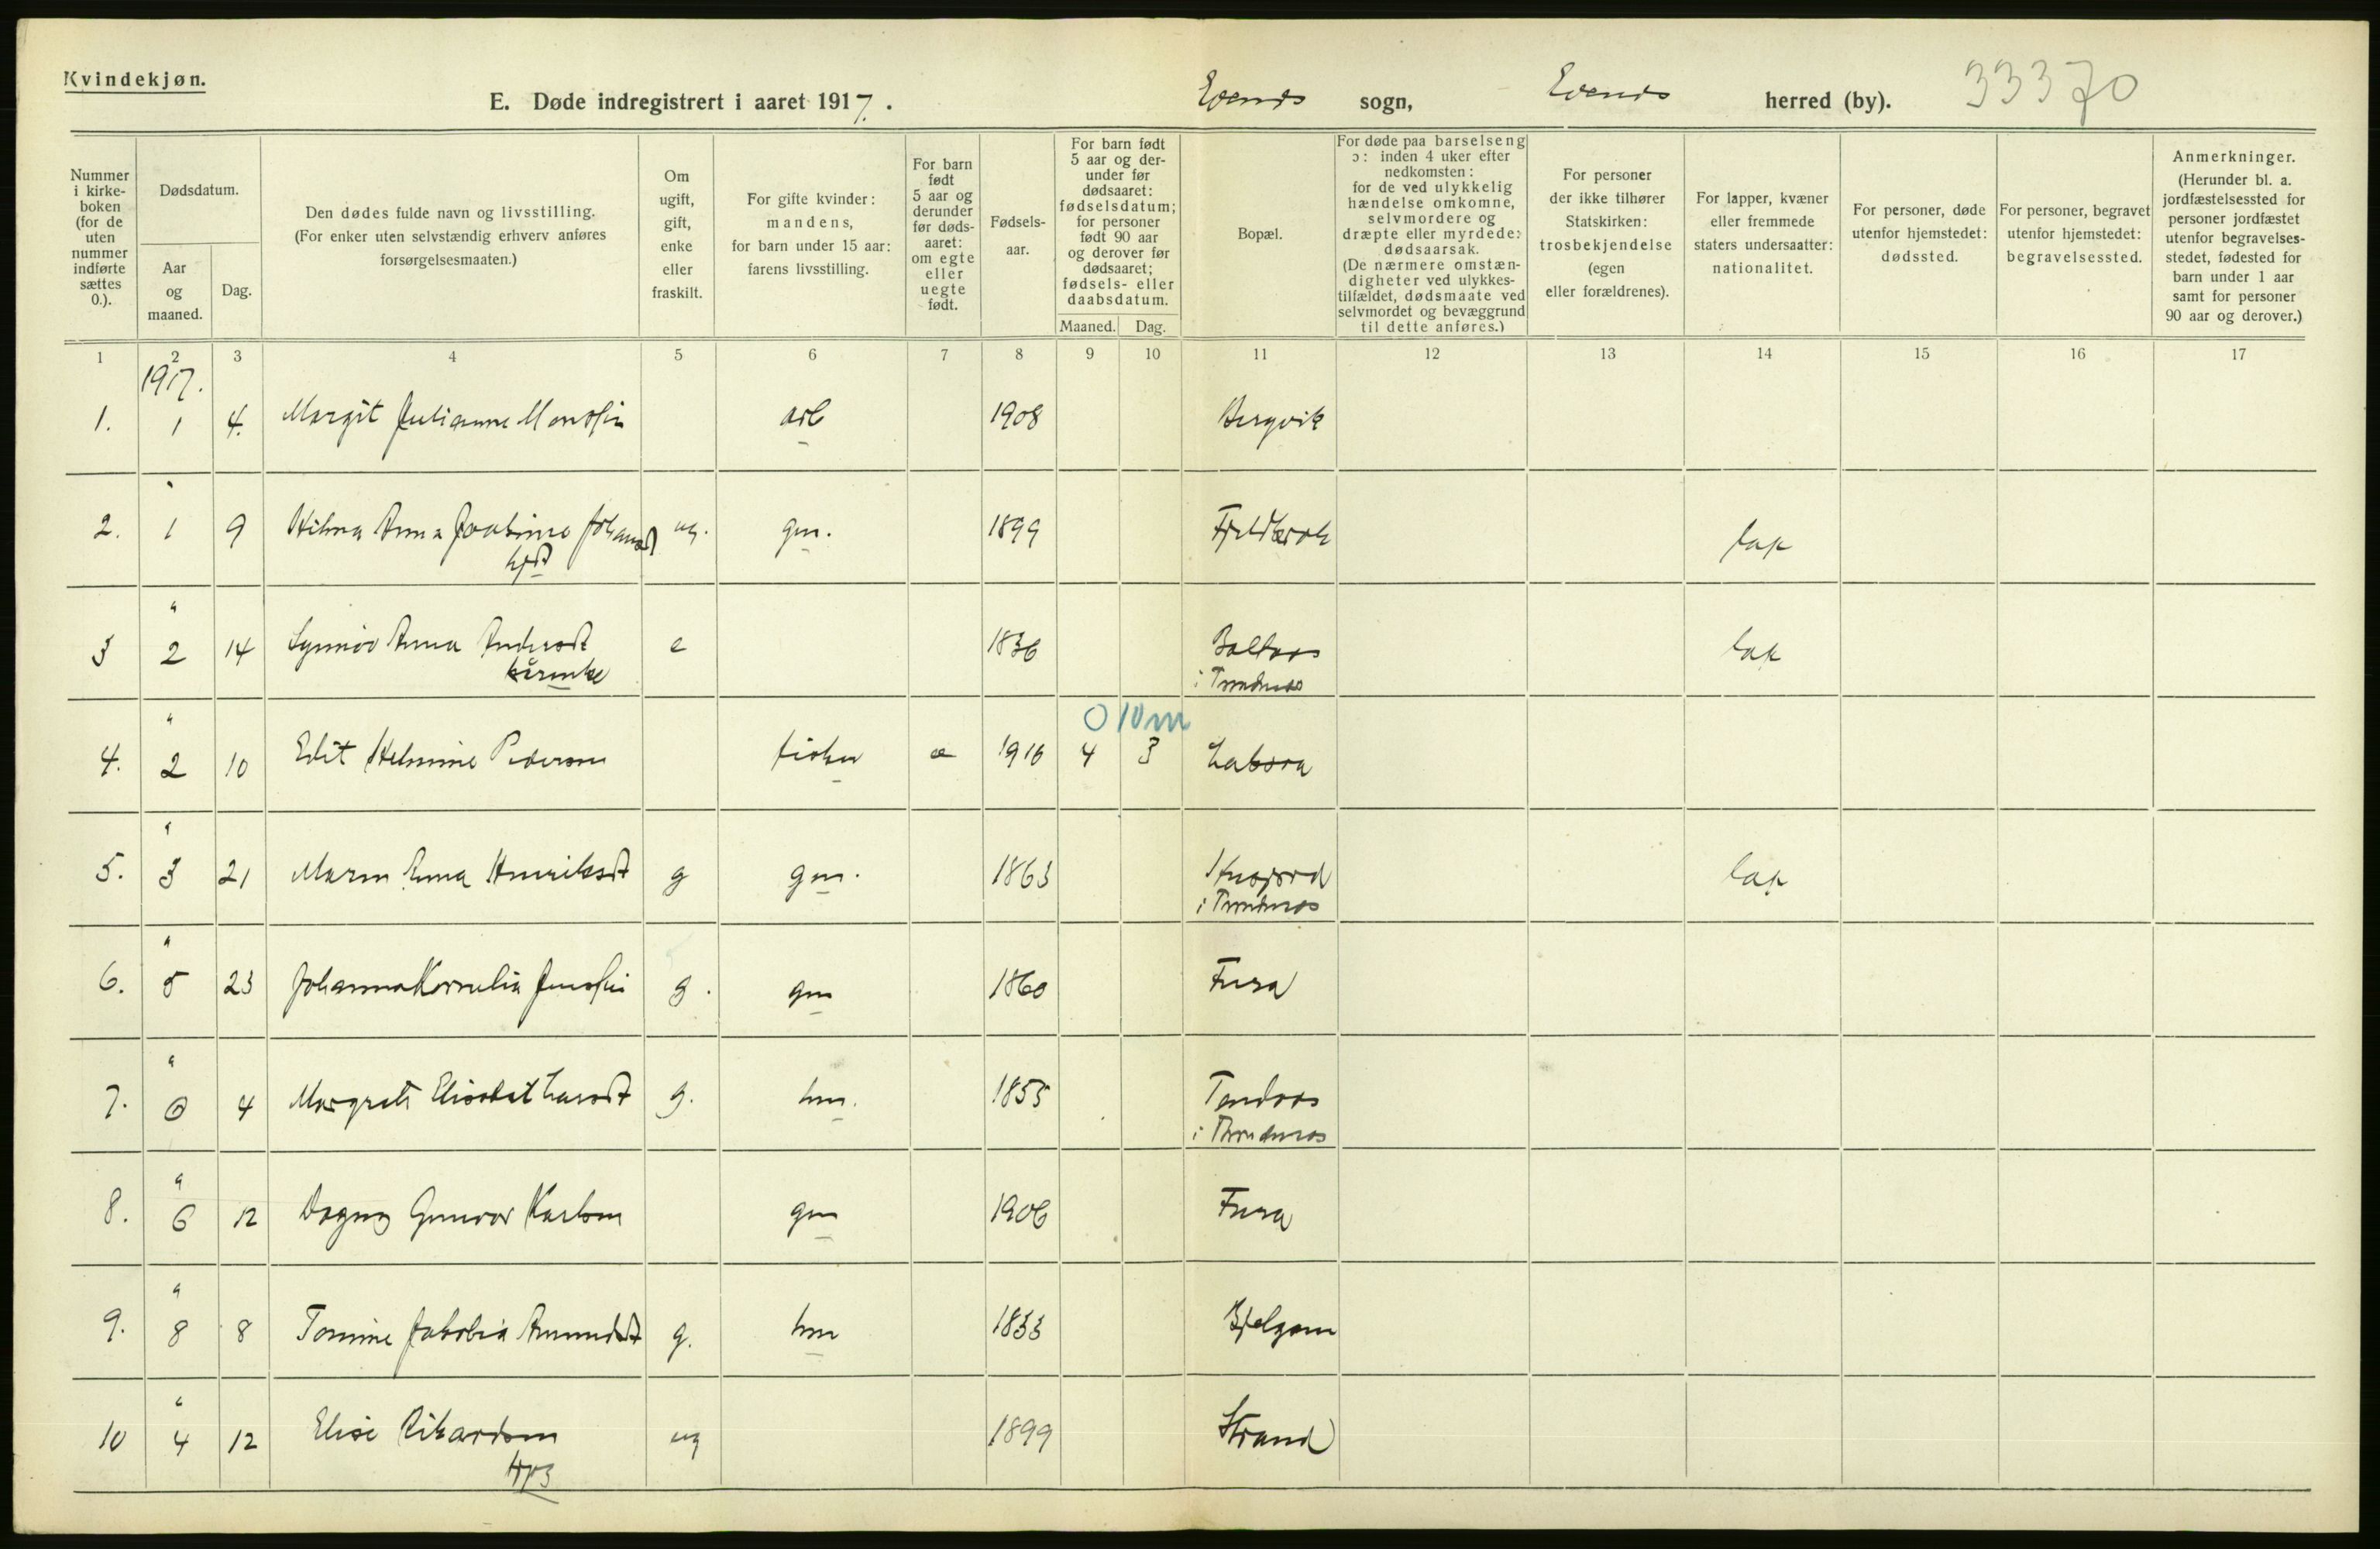 Kvindekjøn.
E. Døde indregistrert i aaret 1917. Evenes sogn, Evenes herred (by). 33370
Nummer i kirke- boken (for de uten nummer indførte sættes 0.).
Dødsdatum.
Aar og maaned.
Dag.
Den dødes fulde navn og livsstilling.
(For enker uten selvstændig erhverv anføres
forsørgelsesmaaten.)
Om ugift, gift, enke eller fraskilt.
For gifte kvinder: mandens, for barn under 15 aar: farens livsstilling.
For barn født 5 aar og derunder før døds- aaret: om egte eller uegte født.
Fødsels- aar.
For barn født 5 aar og der- under før dødsaaret: fødselsdatum; for personer født 90 aar og derover før dødsaaret; fødsels- eller daabsdatum.
Maaned. Dag.
Bopæl.
For døde paa barselseng ɔ: inden 4 uker efter nedkomsten: for de ved ulykkelig hændelse omkomne, selvmordere og dræpte eller myrdede: dødsaarsak. (De nærmere omstæn- digheter ved ulykkes- tilfældet, dødsmaate ved selvmordet og bevæggrund til dette anføres.)
For personer der ikke tilhører Statskirken: trosbekjendelse (egen eller forældrenes).
For lapper, kvæner eller fremmede staters undersaatter: nationalitet.
For personer, døde utenfor hjemstedet: dødssted.
For personer, begravet utenfor hjemstedet: begravelsessted.
Anmerkninger. (Herunder bl. a. jordfæstelsessted for personer jordfæstet utenfor begravelses- stedet, fødested for barn under 1 aar samt for personer 90 aar og derover.)
1 2 3 4 5 6 7 8 9 10 11 12 13 14 15 16 17
1917.
1. 1 4. Margit Julianne Monssen arb 1908 Bergvik
"
2. 1 9 Hilma Anna Joakima Johansd ug. gm. 1899 lap
"
3 2 14 Synnøv Anna Andersdt e 1836 lap
kårenke i Trondenes
0 10 m
"
4. 2 10 Edit Helmine Pedersen fisker e 1916 4 3
"
5. 3 21 Maren Anna Henriksdt g gm. 1863 lap
i Trondenes
"
6. 5 23 Johanna Kornelia Jensen g. gm 1860
"
7. 6 4 Margrete Elisabet Larsdt g. hm. 1855
i Trondenes
"
8. 6 12 Dagny Gunvor Karlsen gm 1906
"
9. 8 8 Tomine Jakobia Amundsdt g. hm 1833
"
10 4 12 Elise Rikardsen ug 1899 Strand